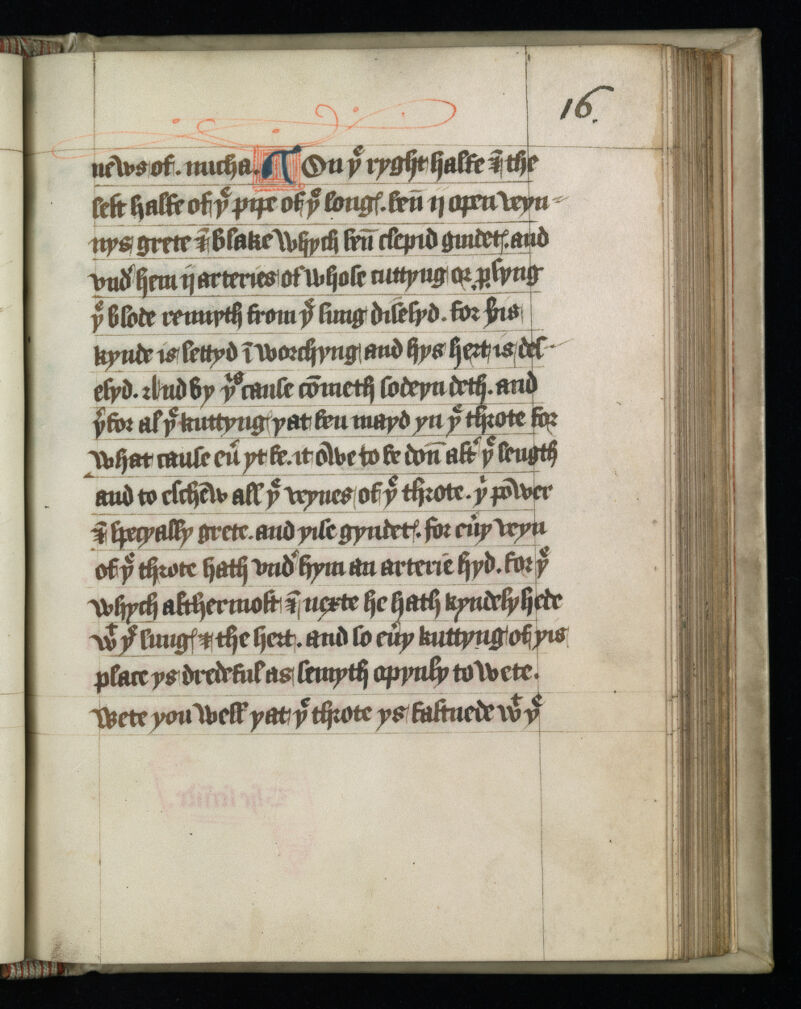 16.
news of. nucha. ¶ On yͤ ryght halfe & the
left halfe of yͤ pipe of yͤ longꝭ. ben̄ ij open veyn=
nys grete & blake Whych ben̄ clepid guidetꝭ. and
vnd̕ hem ij arteries of whose cuttyng or ꝑsyng
yͤ blode rennyth from yͤ lung disesyd. for yis
kynde is lettyd ī worchyng and hys hert is des-
esyd. And by yͥˢ cause cōmeth sodeyn deth. and
y̕for al yͤ kuttyng yat ben mayd yn yͤ throte for
What cause eu̕ yt be. it oWe to be don̄ aft̕ yͤ length
and to escheW all yͤ veynes of yͤ throte. yͤ poWer
& specyally grete. and yise gyndetꝭ. for eu̕y veyn
of yͤ throte hath vnd̕ hym an arterie hyd. for yͤ
Whych afthermost & nexte he hath kyndely hede
wᵗ yͤ lungꝭ & the hert. and so eu̕y kuttyng of yis
place ys dredeful as semyth opynly to Wete.
Wete you Well yat yͤ throte ys fastnede wᵗ yͤ